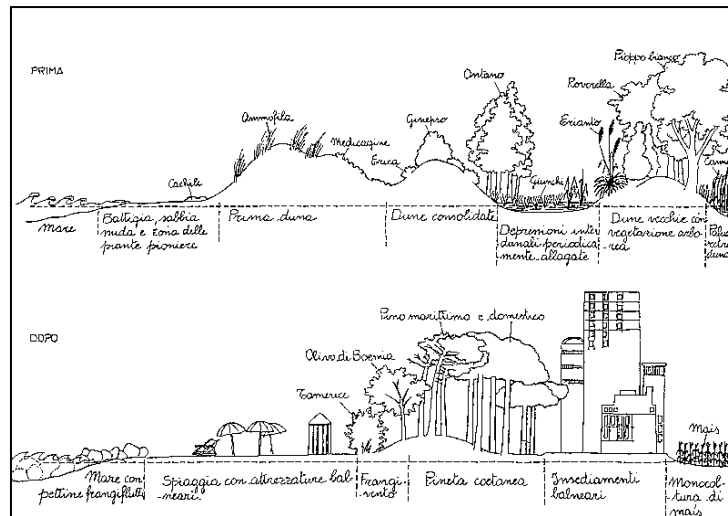 PRIMA
Cachile
Ammofila
Medicagine
Erica
Ginepro
Ontano
Giunchi
Erianto
Roverella
Pioppo bianco
Mare
Battigia, sabbia
nuda e zona delle
piante pioniere
Prima duna
Dune consolidate
Depressioni inter
dunali periodica
mente allagate
Dune vecchie con
vegetazione arbo-
rea
DOPO
Tamerice
Olivo di Boemia
Pino marittimo e domestico
Mais
Mare con
pettine frangiflutti
Spiaggia con attrezzature bal-
neari
Frangi-
vento
Pineta coetanea
Insediamenti
balneari
Monocol-
tura di
mais